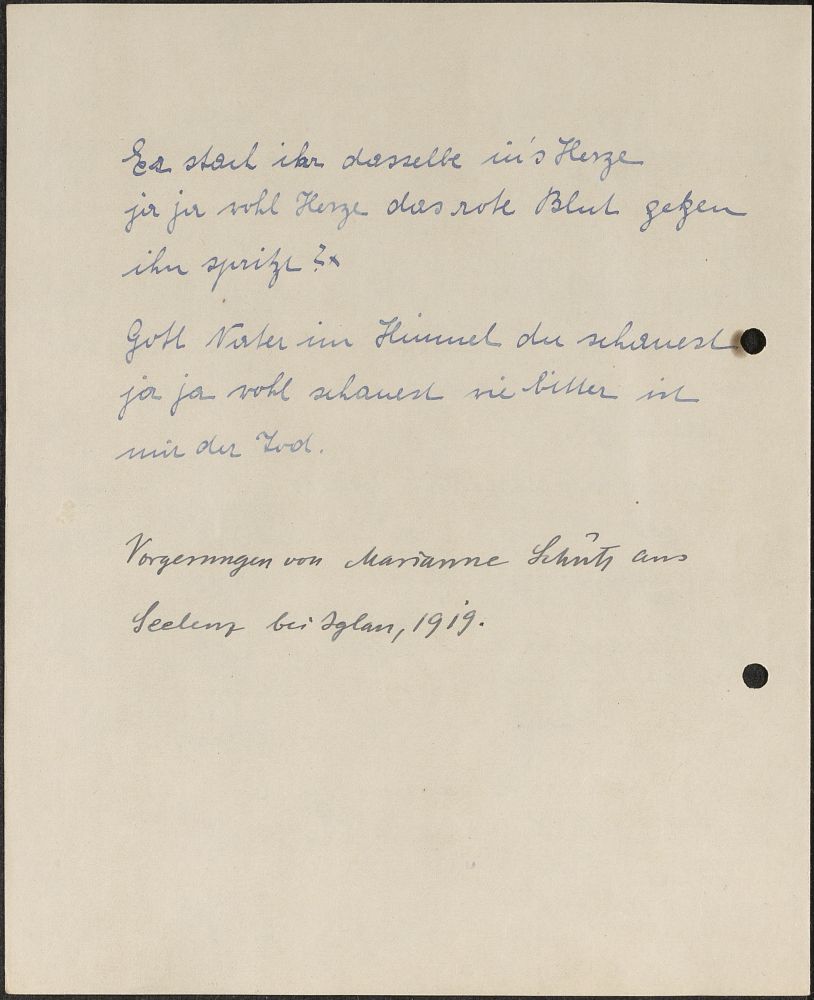 Er stach ihr dasselbe in's Herze
ja ja wohl Herze das rote Blut gegen
ihn spritzt
Gott Vater im Himmel du schauest
ja ja wohl schauest wie bitter ist
mir der Tod.
Vorgesungen von Marianne Schütz aus
Seelenz bei Iglau, 1919.